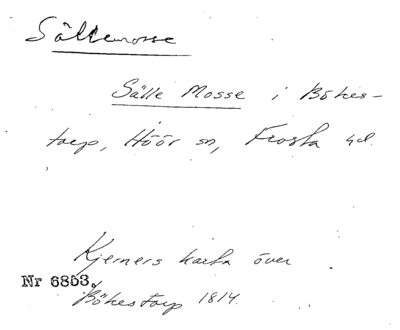 Sällemosse
Sälle Mosse i Bökes-
torp, Höör sn, Frosta hd.
Kjerners karta över
Nr 6853.
Bökestorp 1814.